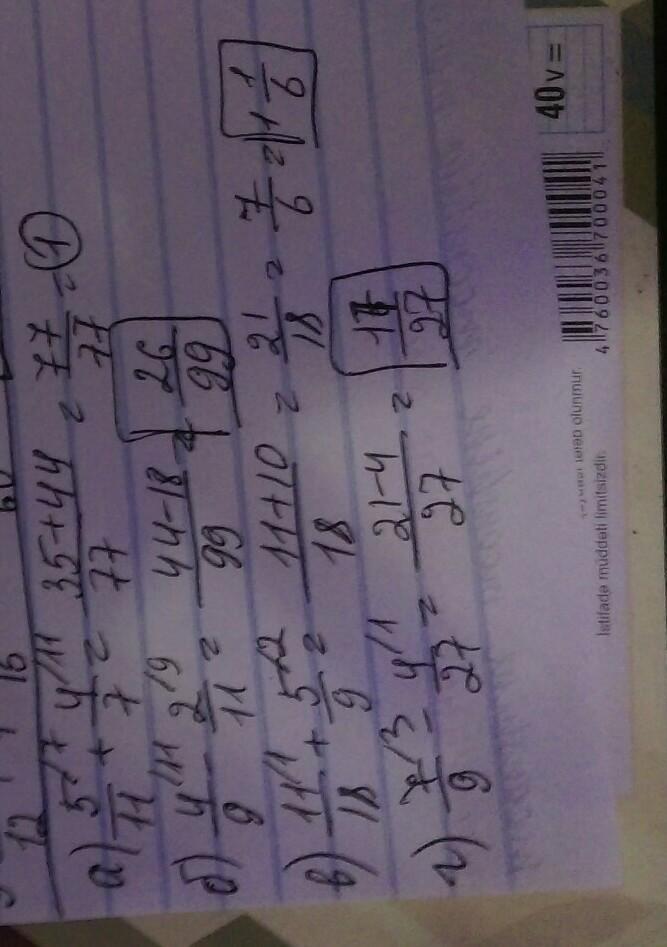 12 18
а) 5/7 / 11 + 4/11 / 7 = 35+44 / 77 = 77/77 = 1
б) 4/11 / 9 - 2/9 / 11 = 44-18 / 99 = 26/99
в) 11/1 / 18 + 5/2 / 9 = 11+10 / 18 = 21/18 = 7/6 = 1 1/6
г) 7/3 / 9 - 4/1 / 27 = 21-4 / 27 = 17/27
İstifadə müddəti limitsizdir.
tələb olunmur.
4 760036 700041
40v =